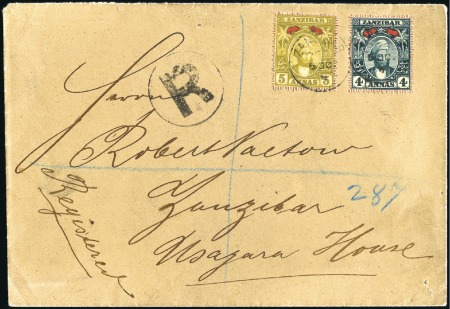 ZANZIBAR ZANZIBAR
5 ANNAS 5 4 ANNAS 4
R
Herrn
Robert
287
Zanzibar
Registered
Usagara House